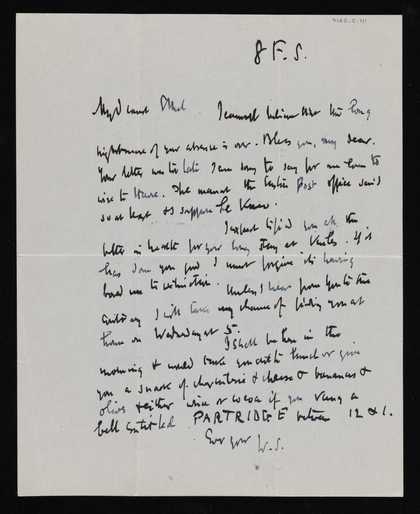 8 F. S.
My dearest Ethel I cannot believe that this long
nightmare of your absence is over. Bless you, my dear.
Your letter was too late I am sorry to say for me to
wire to The man at the Post office said
so at least & I suppose he knows.
I expect find you all the
better in health for your long stay at . If it
has done you good I must forgive its having
been to . Unless I hear from you to the
contrary I will take my chance of finding you at
home on Wednesday at 5.
I shall be here in the
morning & would take you out to lunch or give
you a snack of charcuterie & cheese & bananas &
olives & either wine or cocoa if you rang a
bell entitled PARTRIDGE between 12 & 1.
Ever your W. S.